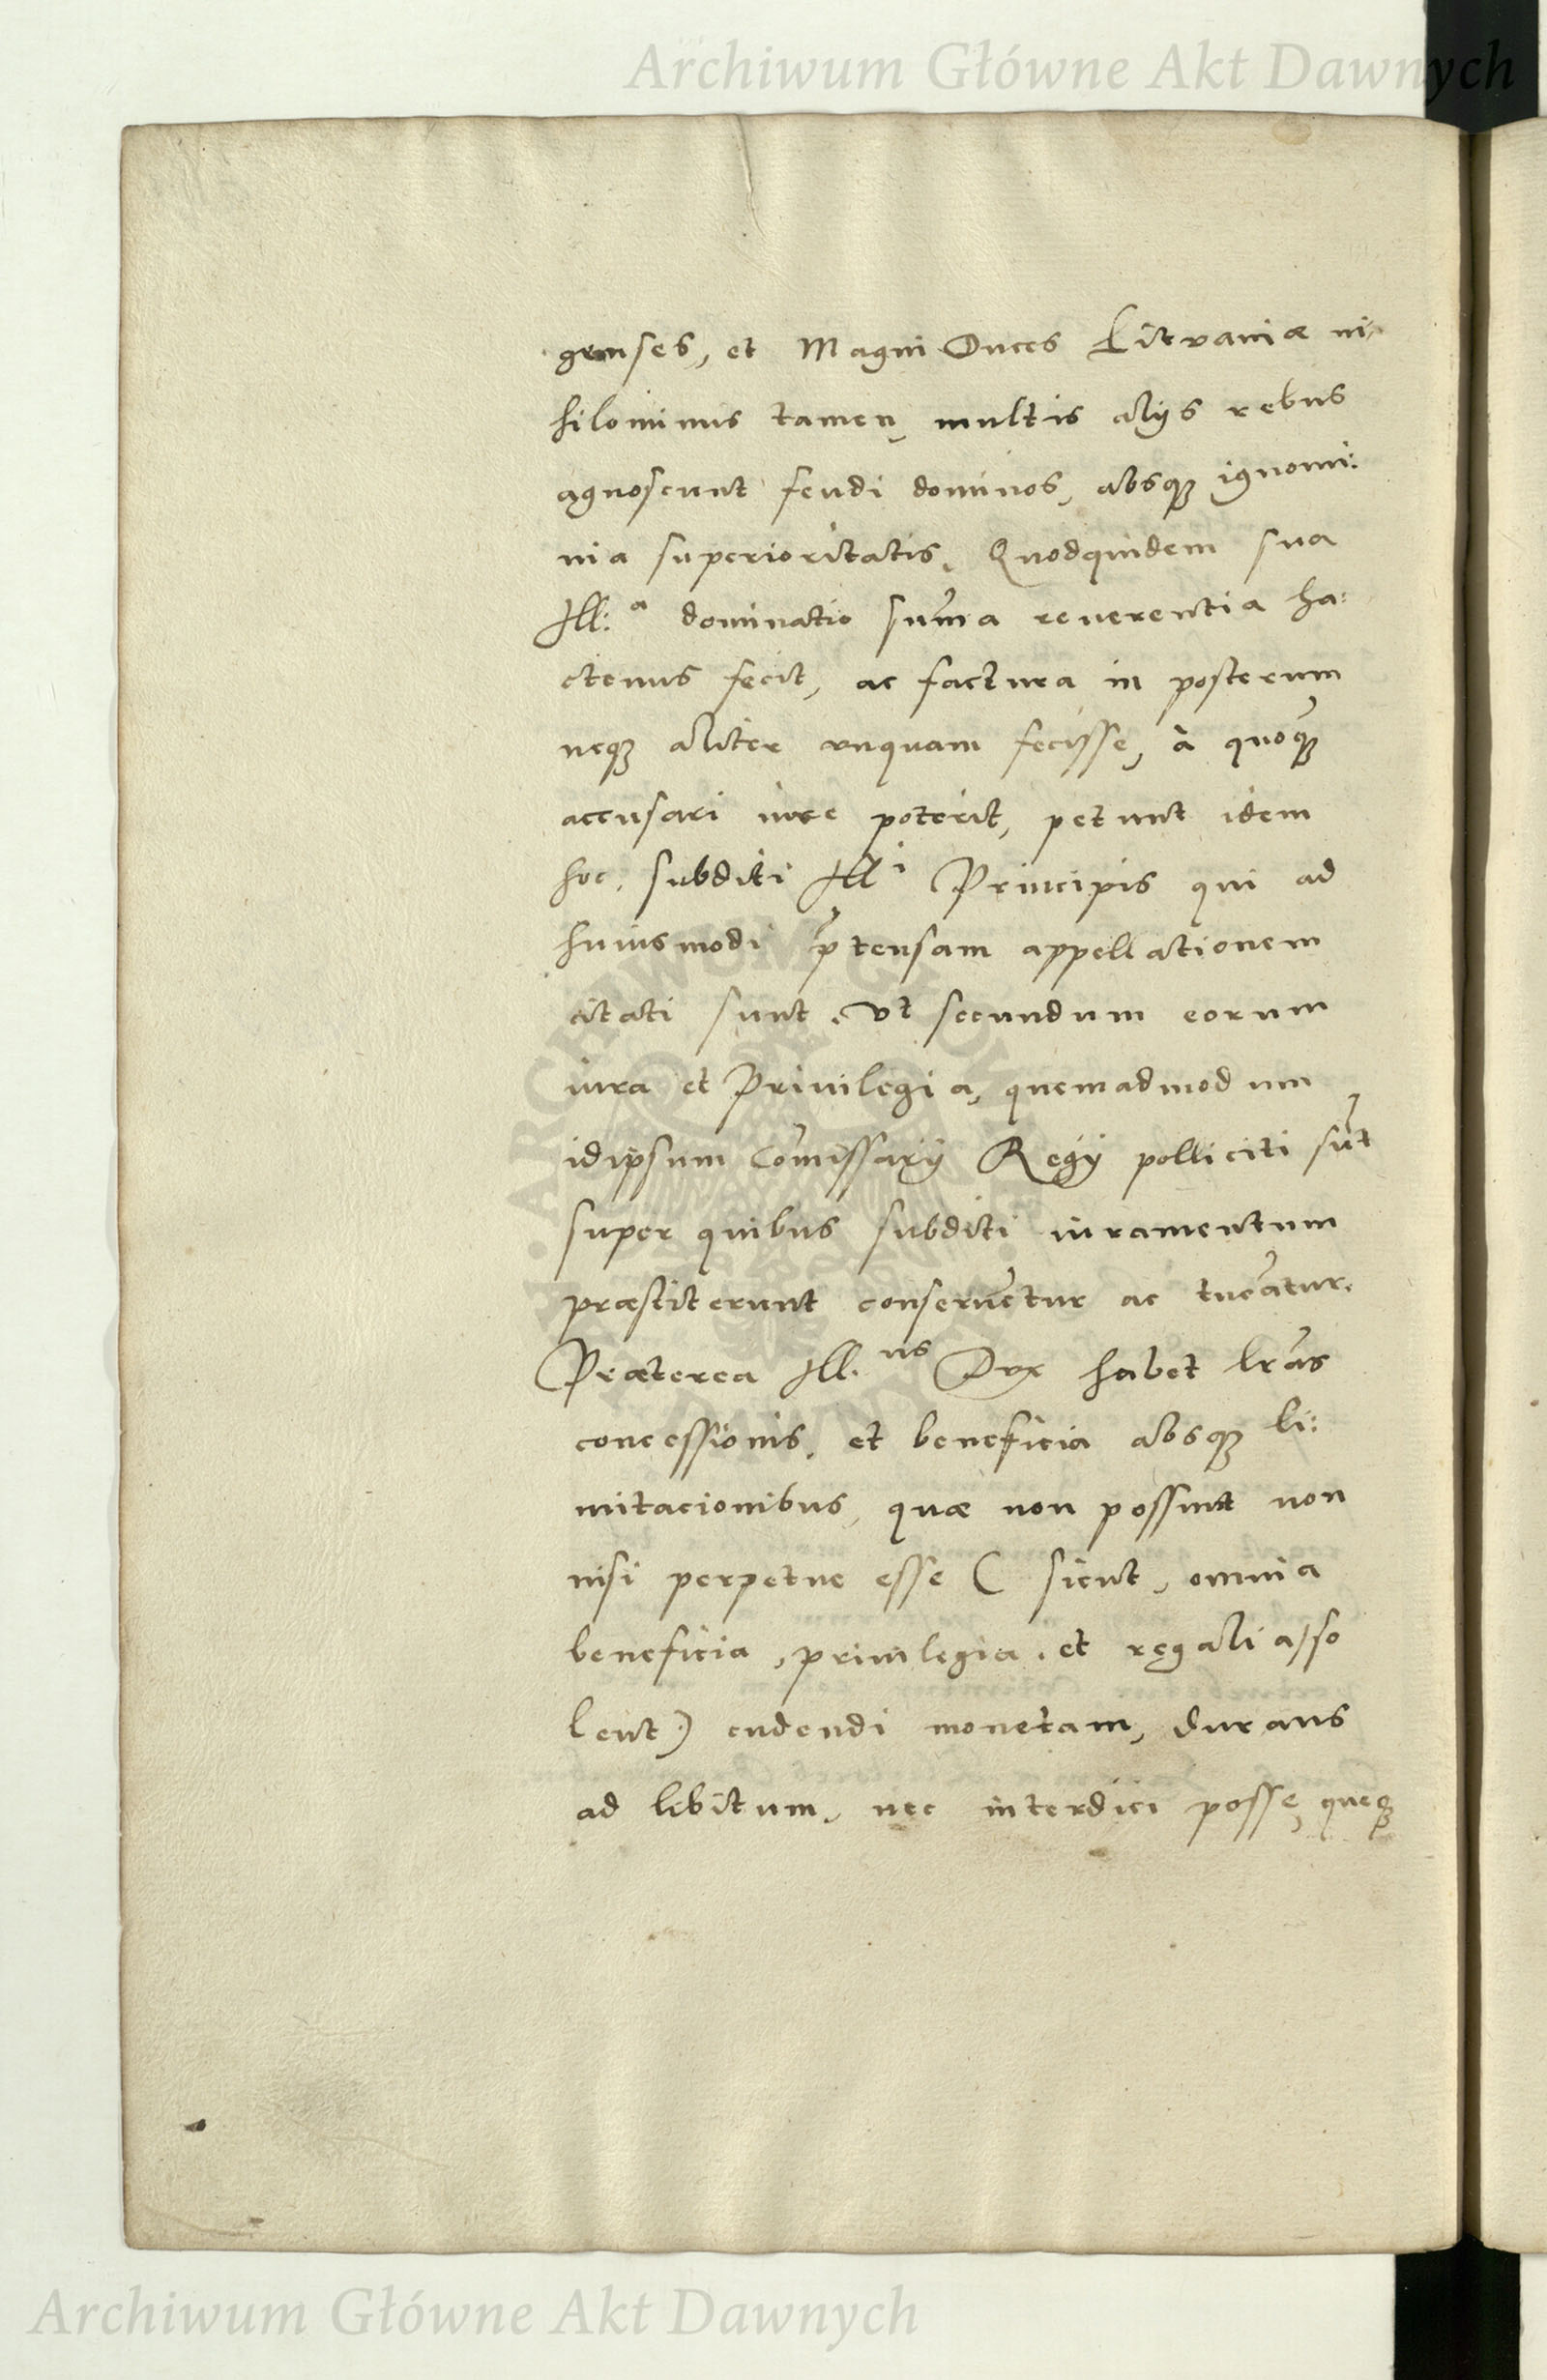 Archiwum Główne Akt Dawnych
genses, et Magni Duces Litvaniæ ni-
hilominus tamen, multis alijs rebus
agnoscunt feudi dominos, absq; ignomi:
nia superioritatis, Quodquidem sua
Ill:a dominatio sum̃a reuerentia ha:
ctenus fecit, ac factura in posterum
neq; aliter vnquam fecisse, à quoq̃;
accusari iure poterit, petunt idem
hoc, subditi Illi Principis qui ad
huiusmodi p̃tensam appellationem
citati sunt, vt secundum eorum
iura et Priuilegia, quemadmodum
idipsum Com̃issarij Regij polliciti sũt
super quibus subditi iuramentum
præstiterunt conseruẽtur ac tueãtur.
Præterea Ill.us Dux habet lrãs
concessionis, et beneficia absq; li:
mitacionibus, quæ non possunt non
nisi perpetue esse ( sicut, omnia
beneficia, priuilegia, et regalia, so
lent) cudendi monetam, durans
ad libitum, nec interdici posse, queq;
Archiwum Główne Akt Dawnych